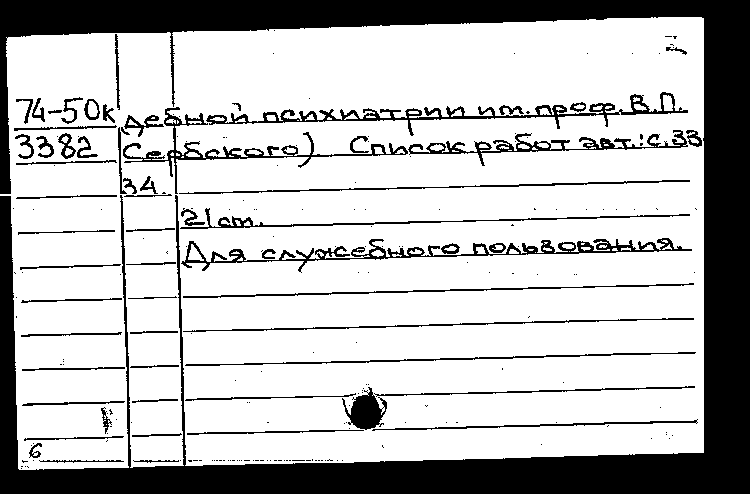 2
74-50к дебной психиатрии им. проф. В.П.
3382 Сербского) Список работ авт.: с. 33-
34.
21 cm.
Для служебного пользования.
6